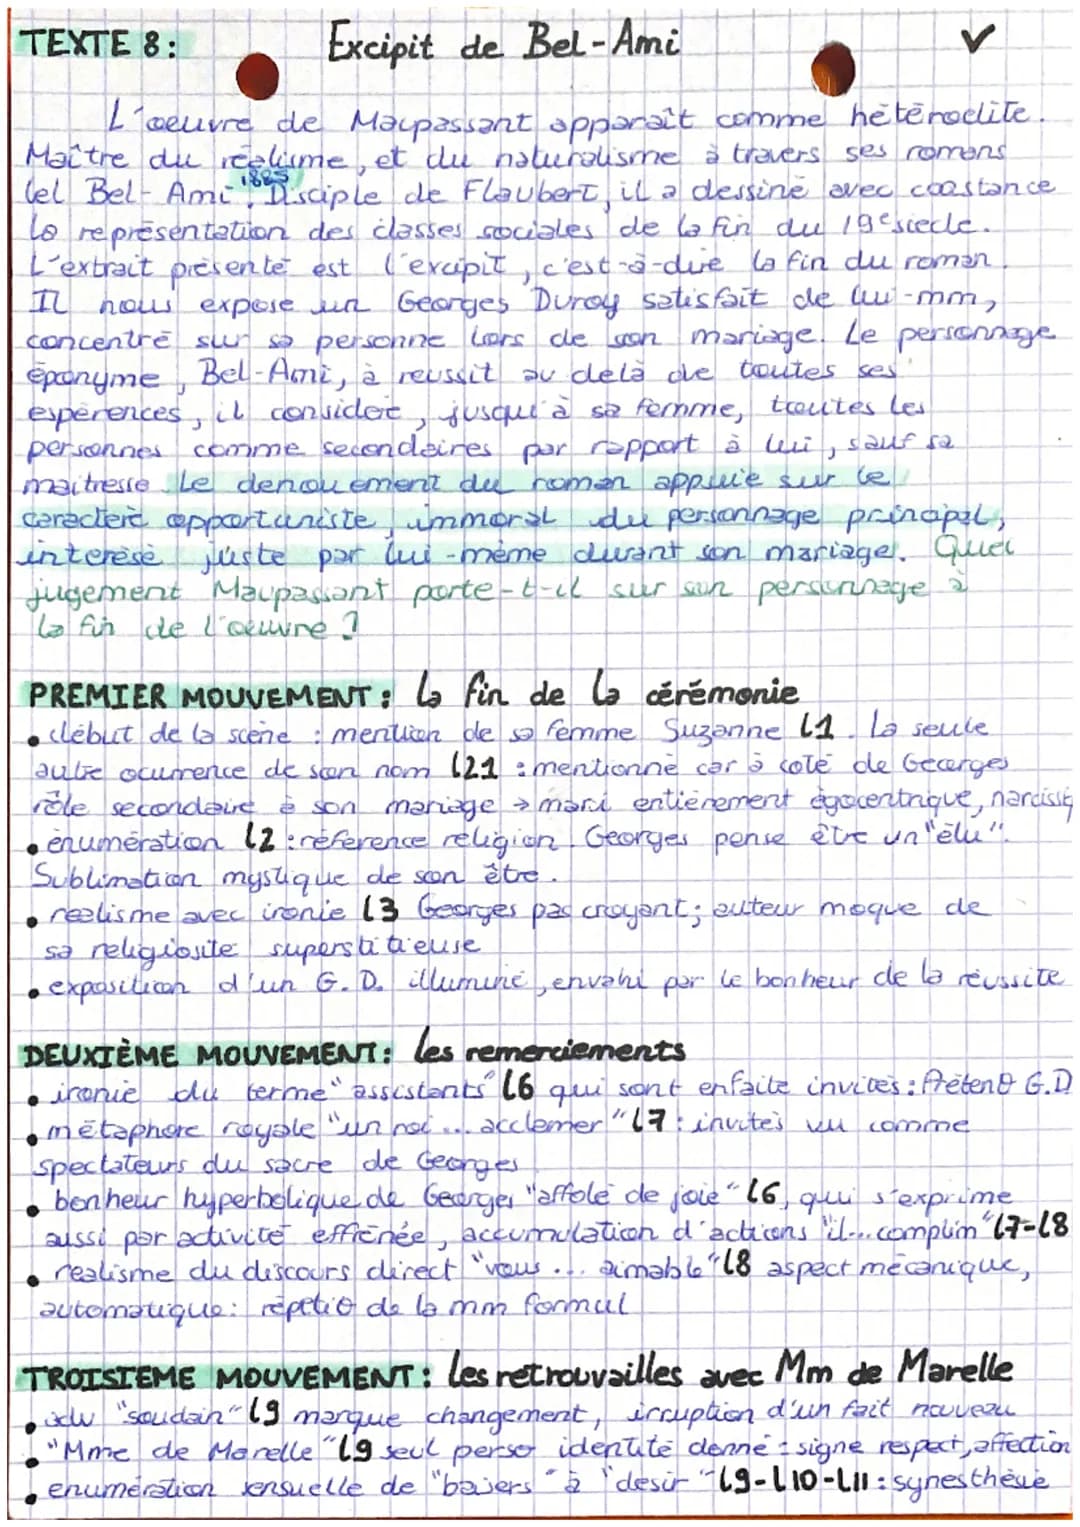 TEXTE 8 : Excipit de Bel-Ami ✓
L'œuvre de Maupassant apparaît comme hétéroclite.
Maître du réalisme, et du naturalisme à travers ses romans
tel Bel-Ami 1885. Disciple de Flaubert, il a dessiné avec constance
la représentation des classes sociales de la fin du 19e siecle.
L'extrait présenté est l'excipit, c'est-à-dire la fin du roman.
Il nous expose un Georges Duroy satisfait de lui-mm,
concentré sur sa personne lors de son mariage. Le personnage
éponyme, Bel-Ami, à reussit au delà de toutes ses
espérences, il considère, jusqu'à sa femme, toutes les
personnes comme secondaires par rapport à lui, sauf sa
maitresse. Le denouement du roman appuie sur le
caractere opportuniste, immoral du personnage principal,
interesé juste par lui-même durant son mariage. Quel
jugement Maupassant porte-t-il sur son personnage à
la fin de l'œuvre ?
PREMIER MOUVEMENT : la fin de la cérémonie
• début de la scène : mention de sa femme Suzanne L1. La seule
autre ocurrence de son nom L21 : mentionné car à coté de Georges
rôle secondaire à son mariage → mari entièrement égocentrique, narcissiq
• énumération L2 : réference religion. Georges pense être un "élu".
Sublimation mystique de son être.
• realisme avec ironie L3 Georges pas croyant ; auteur moque de
sa religiosité superstitieuse
• exposition d'un G. D. illuminé, envahi par le bonheur de la réussite
DEUXIÈME MOUVEMENT : les remerciements
• ironie du terme "assistants" L6 qui sont enfaite invités : G.D
• métaphore royale "un roi ... acclamer" L7 : invités vu comme
spectateurs du sacre de Georges
• bonheur hyperbolique de Georges "affolé de joie" L6, qui s'exprime
aussi par activité effrénée, accumulation d'actions "il... complim" L7-L8
• realisme du discours direct "vous ... aimable" L8 aspect mécanique,
automatique : de la mm formul
TROISIEME MOUVEMENT : les retrouvailles avec Mm de Marelle
• adv "soudain" L9 marque changement, irruption d'un fait nouveau
• "Mme de Marelle" L9 seul perso identité donné : signe respect, affection
• enumération sensuelle de "baisers" à "desir" L9-L10-L11 : synesthésie